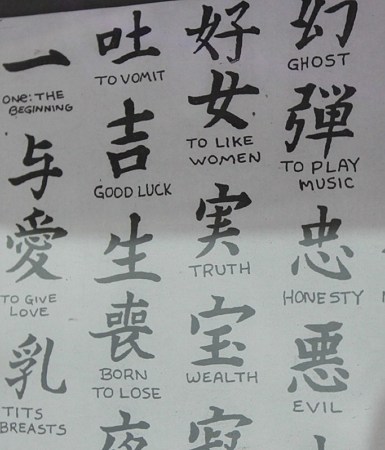 一
ONE: THE
BEGINNING
与
愛
TO GIVE
LOVE
乳
TITS
BREASTS
吐
TO VOMIT
吉
GOOD LUCK
生
喪
BORN
TO LOSE
夜
好
女
TO LIKE
WOMEN
実
TRUTH
宝
WEALTH
寂
幻
GHOST
弾
TO PLAY
MUSIC
忠
HONESTY
悪
EVIL